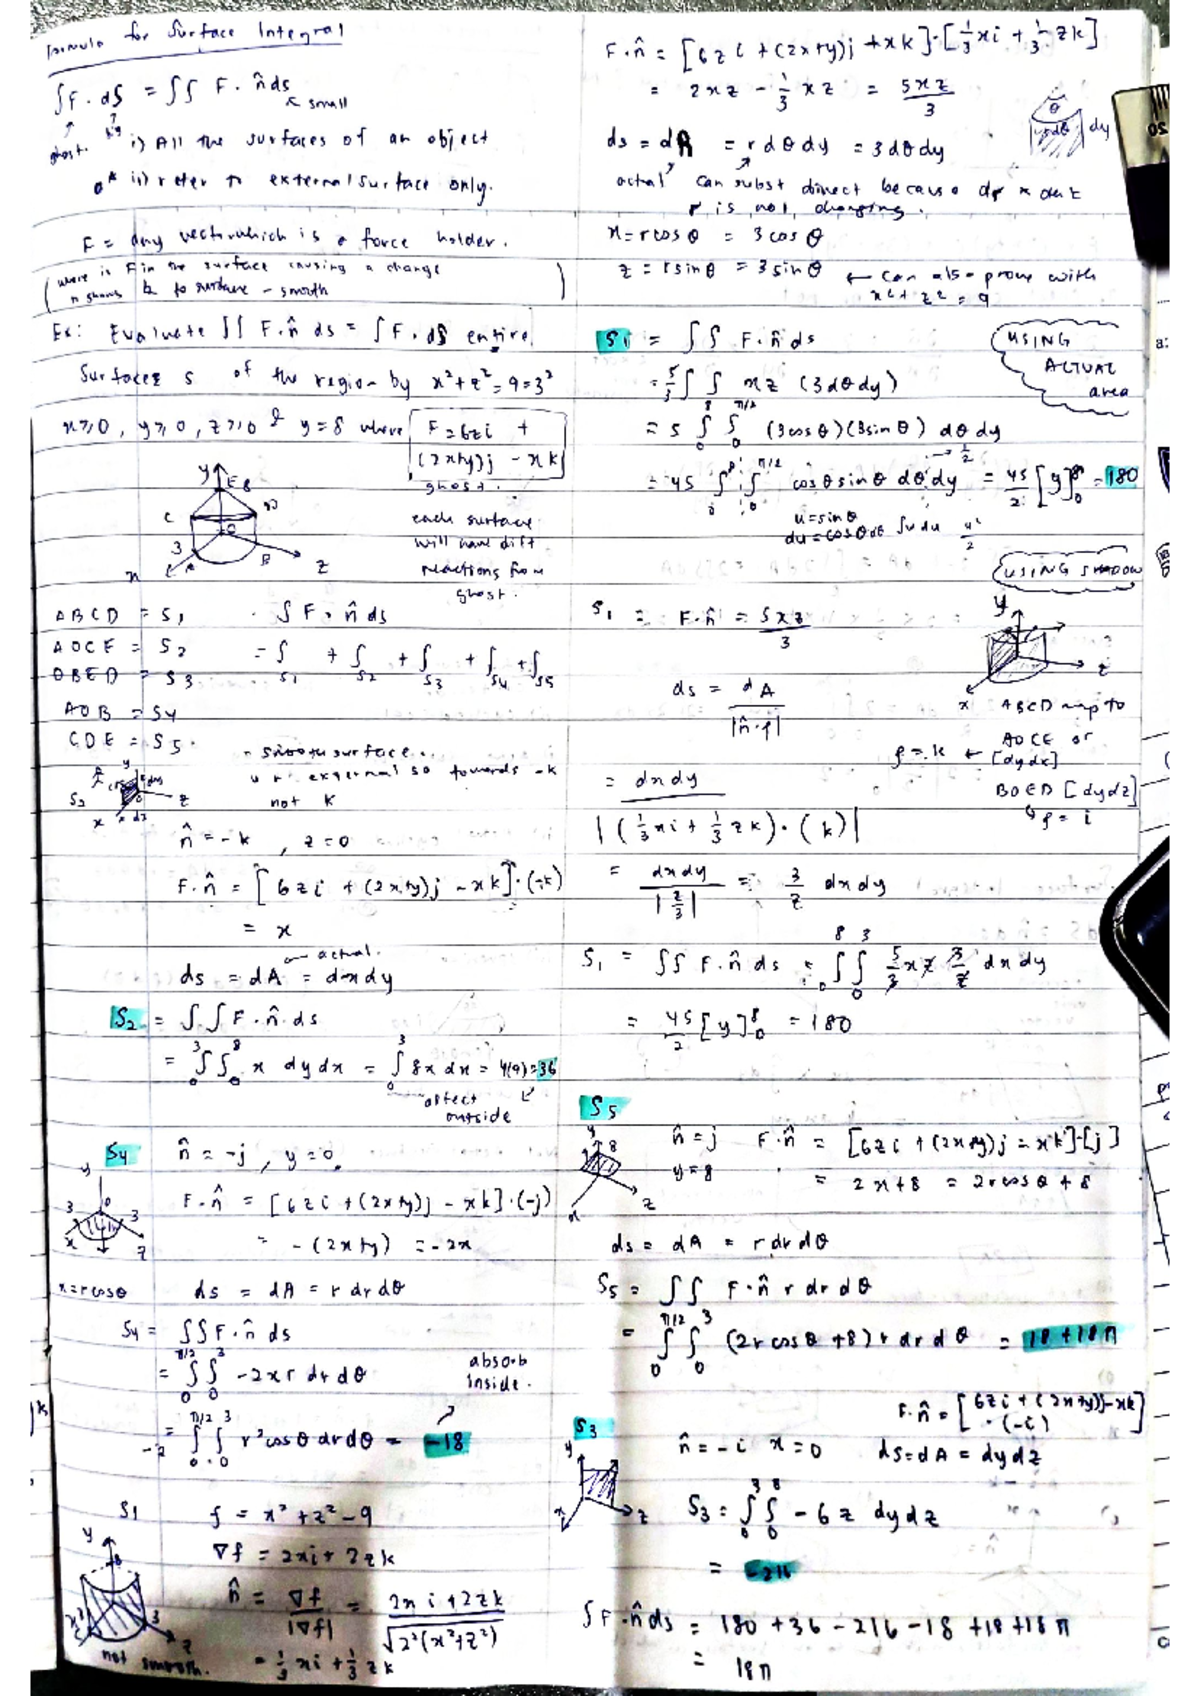 Formula for Surface Integral
∫F·dS = ∫∫ F·n̂ ds
small
ghost.
i) All the surfaces of an object
ii) refer to external surface only.
F = any vector which is a force holder.
to surface - smooth
Ex: Evaluate ∫∫ F·n̂ ds = ∫F·dS entire
Surfaces S of the region by x²+z² = 9 = 3²
x≥0, y≥0, z≥0 & y=8 where F = 6zi +
(2x+y)j - xk
ghost.
each surface
will have diff.
reactions from
ghost.
ABCD = S1
AOCE = S2
OBED = S3
AOB = S4
CDE = S5
∫F·n̂ ds
= ∫S1 + ∫S2 + ∫S3 + ∫S4 + ∫S5
smooth surface
external so towards -k
not k
S2
n̂ = -k, z=0
F·n̂ = [6zi + (2x+y)j - xk]·(-k)
= x
actual.
ds = dA = dxdy
S2 = ∫∫F·n̂·ds
= ∫₀³∫₀⁸ x dydx = ∫₀³ 8x dx = 4(9) = 36
affect
outside
S4
n̂ = -j, y=0
F·n̂ = [6zi + (2x+y)j - xk]·(-j)
= -(2x+y) = -2x
x=rcosθ
ds = dA = r dr dθ
S4 = ∫∫F·n̂ ds
= ∫₀^π/2 ∫₀³ -2xr dr dθ
absorb
inside.
= -2 ∫₀^π/2 ∫₀³ r²cosθ drdθ = -18
S1
f = x²+z²-9
∇f = 2xi + 2zk
n̂ = ∇f/|∇f| = (2xi+2zk)/√(2²(x²+z²))
= 1/3 xi + 1/3 zk
not smooth.
F·n̂ = [6zi + (2x+y)j + xk]·[1/3 xi + 1/3 zk]
= 2xz - 1/3 xz = 5xz/3
ds = dA = rdθdy = 3dθdy
actual can subst direct because
r is not changing.
x = rcosθ = 3cosθ
z = rsinθ = 3sinθ ← can also prove with
x²+z² = 9
S1 = ∫∫ F·n̂ ds
USING
ACTUAL
area
= 5/3 ∫∫ xz (3dθdy)
= 5 ∫₀⁸ ∫₀^π/2 (3cosθ)(3sinθ) dθdy
= 45 ∫₀⁸ ∫₀^π/2 cosθsinθ dθdy = 45/2 [y]₀⁸ = 180
u=sinθ
du=cosθdθ ∫udu u²/2
USING SHADOW
S1 = F·n̂ = 5xz/3
ds = dA/|n̂·ρ|
ABCD map to
AOCE or
ρ=k ← [dydx]
BOED [dydz]
ρ=i
= dxdy
|(1/3 xi + 1/3 zk)·(k)|
= dxdy/|z/3| = 3/z dxdy
S1 = ∫∫ F·n̂ ds = ∫₀⁸∫₀³ 5/3 xz 3/z dxdy
= 45/2 [y]₀⁸ = 180
S5
n̂ = j F·n̂ = [6zi + (2x+y)j - xk]·[j]
y=8 = 2x+8 = 2rcosθ+8
ds = dA = rdrdθ
S5 = ∫∫ F·n̂ r dr dθ
= ∫₀^π/2 ∫₀³ (2rcosθ+8)r dr dθ = 18+18π
S3
F·n̂ = [6zi+(2x+y)j-xk]
·(-i)
n̂ = -i x=0 ds=dA=dydz
S3 = ∫₀³∫₀⁸ -6z dydz
= -216
∫F·n̂ds = 180+36-216-18+18+18π
= 18π